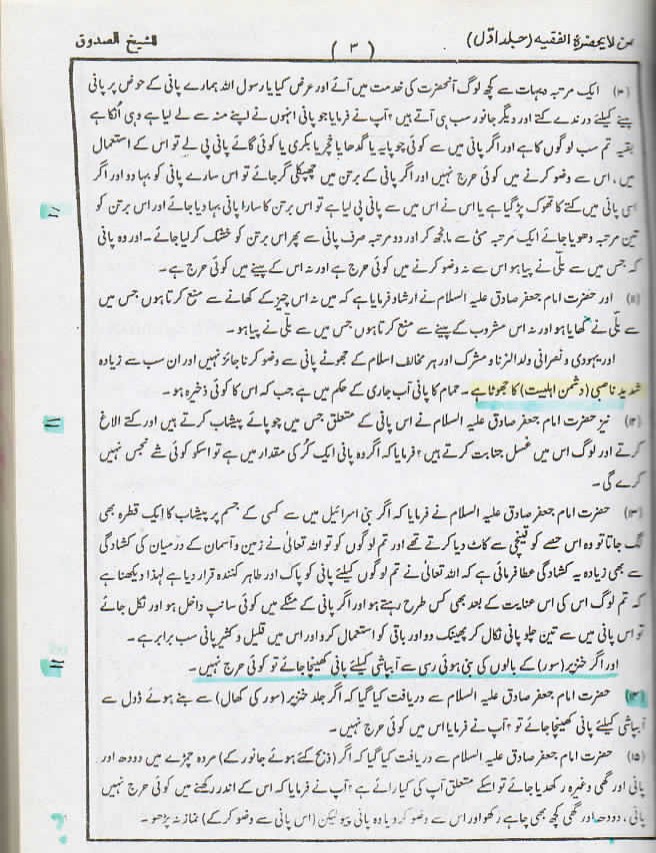 من لا یحضرۂ الفقیہ (جلد اوّل)
(۳)
الشیخ الصدوق
(۱۰) ایک مرتبہ دیہات سے کچھ لوگ آنحضرت کی خدمت میں آئے اور عرض کیا یا رسول اللہ ہمارے پانی کے حوض پر پانی
پینے کیلئے درندے کتے اور دیگر جانور سب ہی آتے ہیں؟ آپ نے فرمایا جو پانی انہوں نے اپنے منہ سے لے لیا ہے وہی اُنکا ہے
بقیہ تم سب لوگوں کا ہے اور اگر پانی میں سے کوئی چوپایہ یا گدھا یا خچر یا بکری یا کوئی گائے پانی پی لے تو اس کے استعمال
میں، اس سے وضو کرنے میں کوئی حرج نہیں اور اگر پانی کے برتن میں چھپکلی گر جائے تو اس سارے پانی کو بہا دو اور اگر
اسی پانی میں کتے کا تھوک پڑ گیا ہے یا اس نے اس میں سے پانی پی لیا ہے تو اس برتن کا سارا پانی بہا دیا جائے اور اس برتن کو
تین مرتبہ دھویا جائے ایک مرتبہ مٹی سے مانجھ کر اور دو مرتبہ صرف پانی سے پھر اس برتن کو خشک کر لیا جائے۔ اور وہ پانی
کہ جس میں سے بلّی نے پیا ہو اس سے نہ وضو کرنے میں کوئی حرج ہے اور نہ اس کے پینے میں کوئی حرج ہے۔
(۱۱) اور حضرت امام جعفر صادق علیہ السلام نے ارشاد فرمایا ہے کہ میں نہ اس چیز کے کھانے سے منع کرتا ہوں جس میں
سے بلّی نے کھایا ہو اور نہ اس مشروب کے پینے سے منع کرتا ہوں جس میں سے بلّی نے پیا ہو۔
اور یہودی و نصرانی ولد الزنا و مشرک اور ہر مخالف اسلام کے جھوٹے پانی سے وضو کرنا جائز نہیں اور ان سب سے زیادہ
شدید ناصبی (دشمن اہلبیت) کا جھوٹا ہے۔ حمام کا پانی آب جاری کے حکم میں ہے جب کہ اس کا کوئی ذخیرہ ہو۔
(۱۲) نیز حضرت امام جعفر صادق علیہ السلام نے اس پانی کے متعلق جس میں چوپائے پیشاب کرتے ہیں اور کتے الاغ
کرتے اور لوگ اس میں غسل جنابت کرتے ہیں؟ فرمایا کہ اگر وہ پانی ایک کُر کی مقدار میں ہے تو اسکو کوئی شے نجس نہیں
کرے گی۔
(۱۳) حضرت امام جعفر صادق علیہ السلام نے فرمایا کہ اگر بنی اسرائیل میں سے کسی کے جسم پر پیشاب کا ایک قطرہ بھی
لگ جاتا تو وہ اس حصے کو قینچی سے کاٹ دیا کرتے تھے اور تم لوگوں کو تو اللہ تعالیٰ نے زمین و آسمان کے درمیان کی کشادگی
سے بھی زیادہ یہ کشادگی عطا فرمائی ہے کہ اللہ تعالیٰ نے تم لوگوں کیلئے پانی کو پاک اور طاہر کنندہ قرار دیا ہے لہذا دیکھنا ہے
کہ تم لوگ اس کی اس عنایت کے بعد بھی کس طرح رہتے ہو اور اگر پانی کے مٹکے میں کوئی سانپ داخل ہو اور نکل جائے
تو اس پانی میں سے تین چلو پانی نکال کر پھینک دو اور باقی کو استعمال کرو اور اس میں قلیل و کثیر پانی سب برابر ہے۔
اور اگر خنزیر (سور) کے بالوں کی بنی ہوئی رسی سے آبپاشی کیلئے پانی کھینچا جائے تو کوئی حرج نہیں۔
(۱۴) حضرت امام جعفر صادق علیہ السلام سے دریافت کیا گیا کہ اگر جلد خنزیر (سور کی کھال) سے بنے ہوئے ڈول سے
آبپاشی کیلئے پانی کھینچا جائے تو؟ آپ نے فرمایا اس میں کوئی حرج نہیں۔
(۱۵) حضرت امام جعفر صادق علیہ السلام سے دریافت کیا گیا کہ اگر (ذبح کئے ہوئے جانور کے) مردہ چمڑے میں دودھ اور
پانی اور گھی وغیرہ رکھدیا جائے تو اسکے متعلق آپ کی کیا رائے ہے؟ آپ نے فرمایا کہ اس کے اندر رکھنے میں کوئی حرج نہیں
پانی، دودھ اور گھی کچھ بھی چاہے رکھو اور اس سے وضو کرو یا وہ پانی پیو لیکن (اس پانی سے وضو کر کے) نماز نہ پڑھو۔